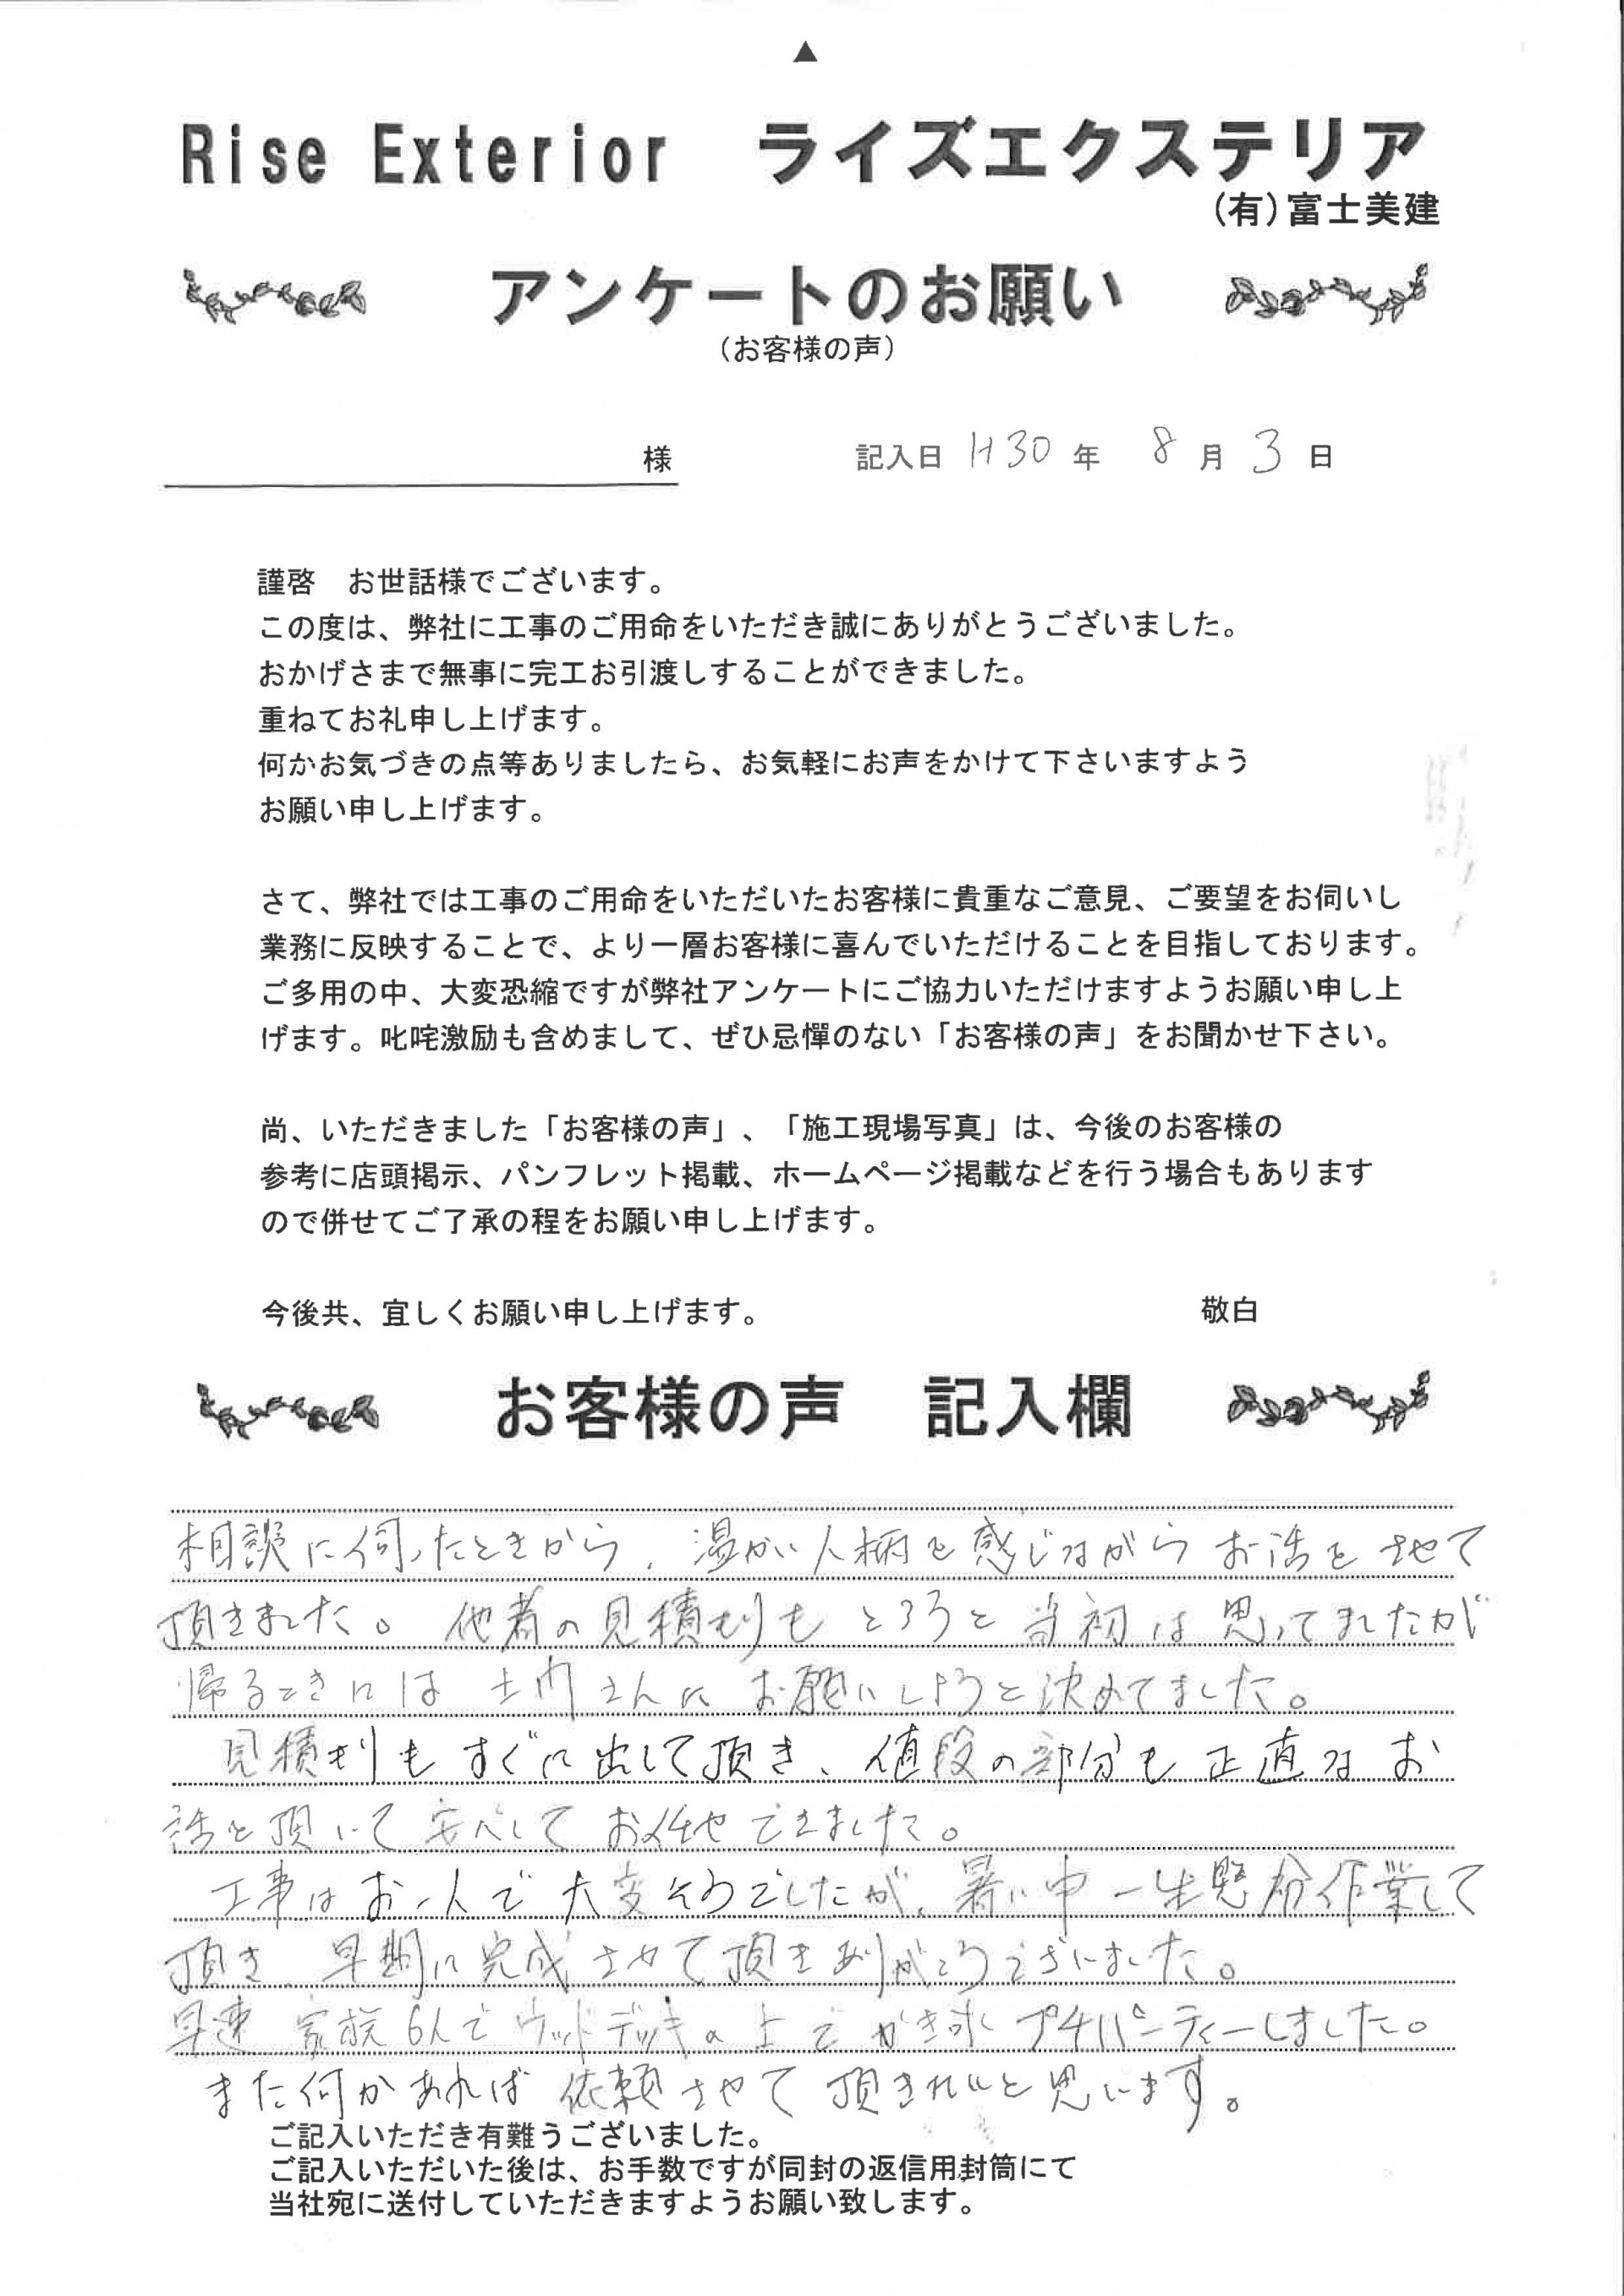 ▲
Rise Exterior ライズエクステリア
(有)富士美建
アンケートのお願い
(お客様の声)
様 記入日 H30年 8月3日
謹啓 お世話様でございます。
この度は、弊社に工事のご用命をいただき誠にありがとうございました。
おかげさまで無事に完工お引渡しすることができました。
重ねてお礼申し上げます。
何かお気づきの点等ありましたら、お気軽にお声をかけて下さいますよう
お願い申し上げます。
さて、弊社では工事のご用命をいただいたお客様に貴重なご意見、ご要望をお伺いし
業務に反映することで、より一層お客様に喜んでいただけることを目指しております。
ご多用の中、大変恐縮ですが弊社アンケートにご協力いただけますようお願い申し上
げます。叱咤激励も含めまして、ぜひ忌憚のない「お客様の声」をお聞かせ下さい。
尚、いただきました「お客様の声」、「施工現場写真」は、今後のお客様の
参考に店頭掲示、パンフレット掲載、ホームページ掲載などを行う場合もあります
ので併せてご了承の程をお願い申し上げます。
今後共、宜しくお願い申し上げます。 敬白
お客様の声 記入欄
相談に伺ったときから、温かい人柄を感じながらお話をさせて
頂きました。他者の見積もりもとろうと当初は思ってましたが
帰るときには土内さんにお願いしようと決めてました。
見積もりもすぐに出して頂き、値段の部分も正直なお
話を頂いて安心してお任せできました。
工事はお一人で大変そうでしたが、暑い中一生懸命作業して
頂き、早期に完成させて頂きありがとうございました。
早速 家族6人でウッドデッキの上でかき氷プチパーティーしました。
また何かあれば依頼させて頂きたいと思います。
ご記入いただき有難うございました。
ご記入いただいた後は、お手数ですが同封の返信用封筒にて
当社宛に送付していただきますようお願い致します。